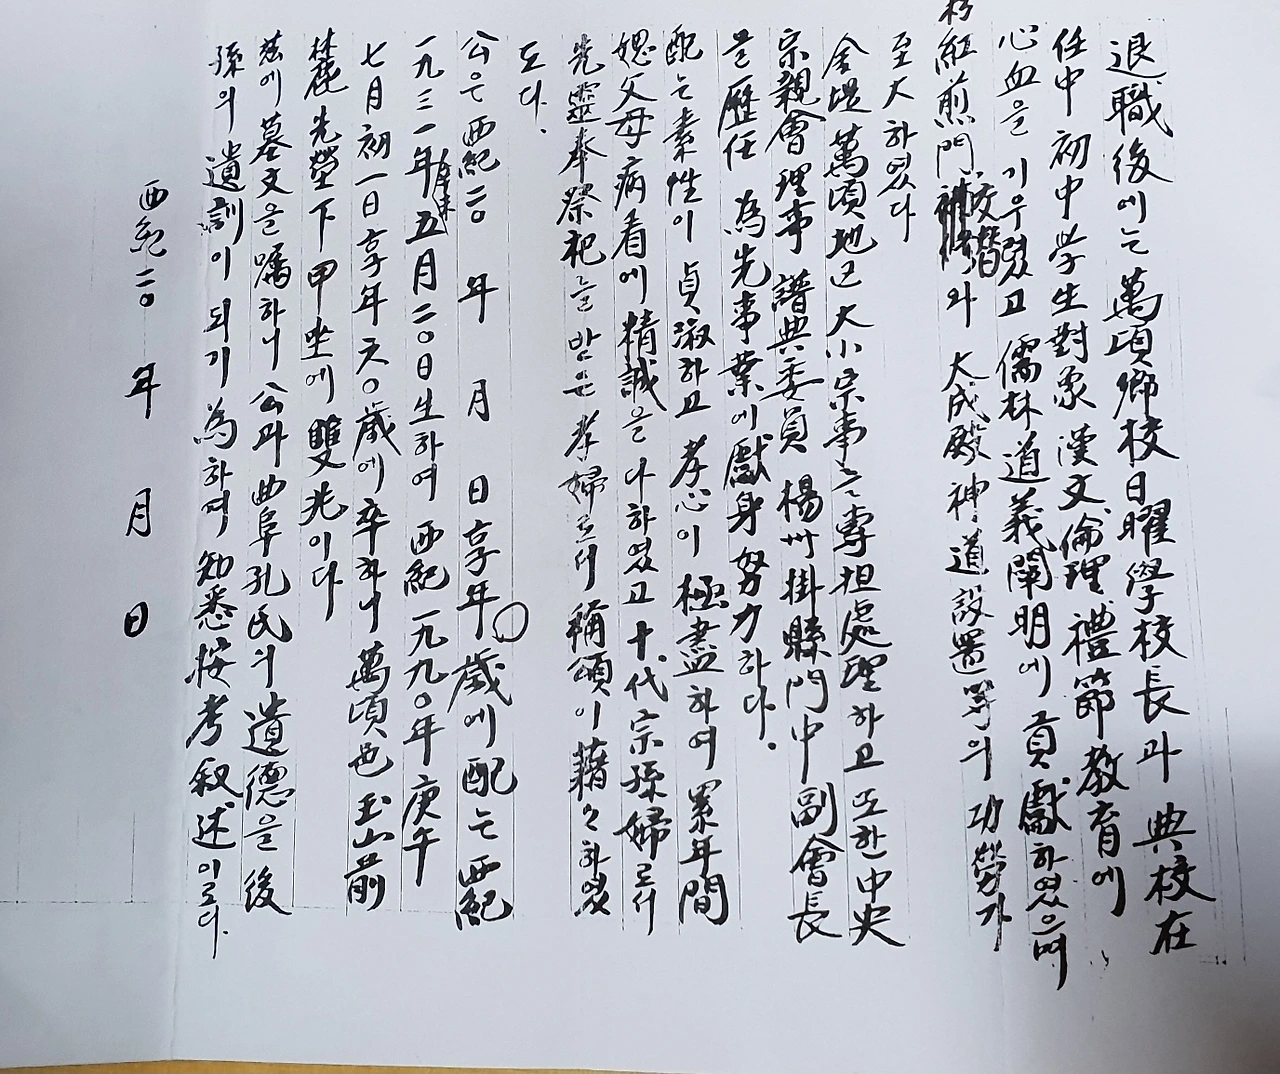 退職後에는 萬頃鄕校日曜學校長과 典校在
任中 初中学生對象 漢文 倫理 禮節 敎育에
心血을 기우렸고 儒林道義闡明에 貢獻하였으며
紅煎門 와 大成殿神道設置等의 功勞가
至大하였다
金堤萬頃地区大小宗事를 專担處理하고 또한 中央
宗親會理事 譜典委員 楊州掛縣門中副會長
을 歷任 為先事業에 獻身努力하다.
配는 素性이 貞淑하고 孝心이 極盡하여 累年間
媤父母病看에 精誠을 다하였고 十代宗孫婦로서
先靈奉祭祀를 받은 孝婦로서 稱頌이 藉々하였
도다.
公은 西紀二〇 年 月 日 享年〇歲에 配는 西紀
一九三一年辛未五月二〇日生하여 西紀一九九〇年庚午
七月初一日享年六〇歲에 卒하니 萬頃邑 玉山前
麓先塋下 甲坐에 雙兆이다
玆에 墓文을 囑하니 公과 曲阜孔氏의 遺德을 後
孫의 遺訓이 되기 為하여 知悉按考叙述이로다.
西紀二〇 年 月 日